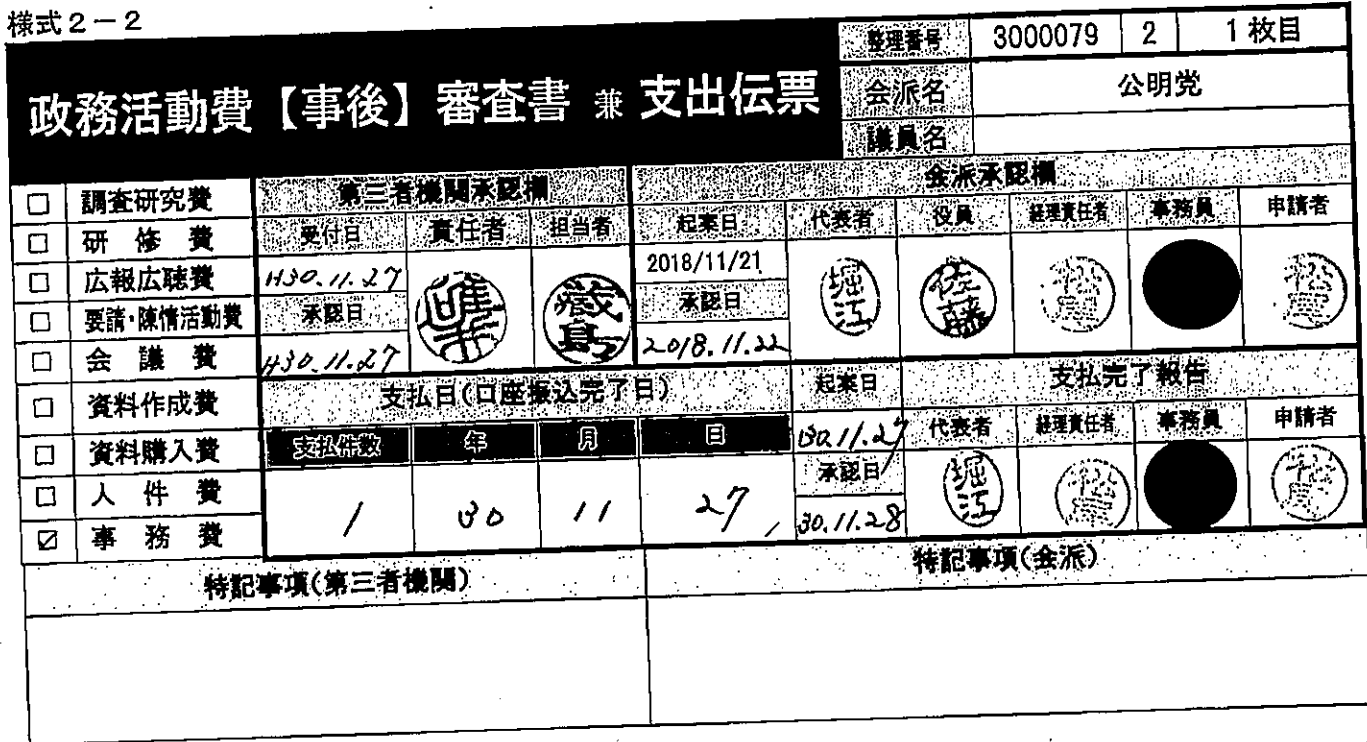 様式2-2
整理番号 3000079 2 1枚目
政務活動費【事後】審査書 兼 支出伝票
会派名 公明党
議員名
□ 調査研究費
□ 研修費
□ 広報広聴費
□ 要請・陳情活動費
□ 会議費
□ 資料作成費
□ 資料購入費
□ 人件費
☑ 事務費
第三者機関承認欄
受付日 責任者 担当者
H30.11.27
承認日
H30.11.27
会派承認欄
起案日 代表者 役員 経理責任者 事務員 申請者
2018/11/21
承認日
2018.11.22
堀江 佐藤
支払日(口座振込完了日)
支払件数 年 月 日
1 30 11 27
起案日
30.11.27
承認日
30.11.28
支払完了報告
代表者 経理責任者 事務員 申請者
堀江
特記事項(第三者機関)
特記事項(会派)